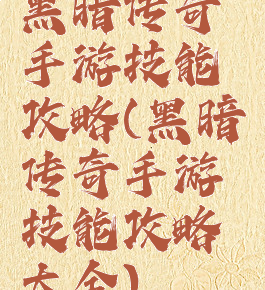 黑暗传奇
手游技能
攻略(黑暗
传奇手游
技能攻略
大全)